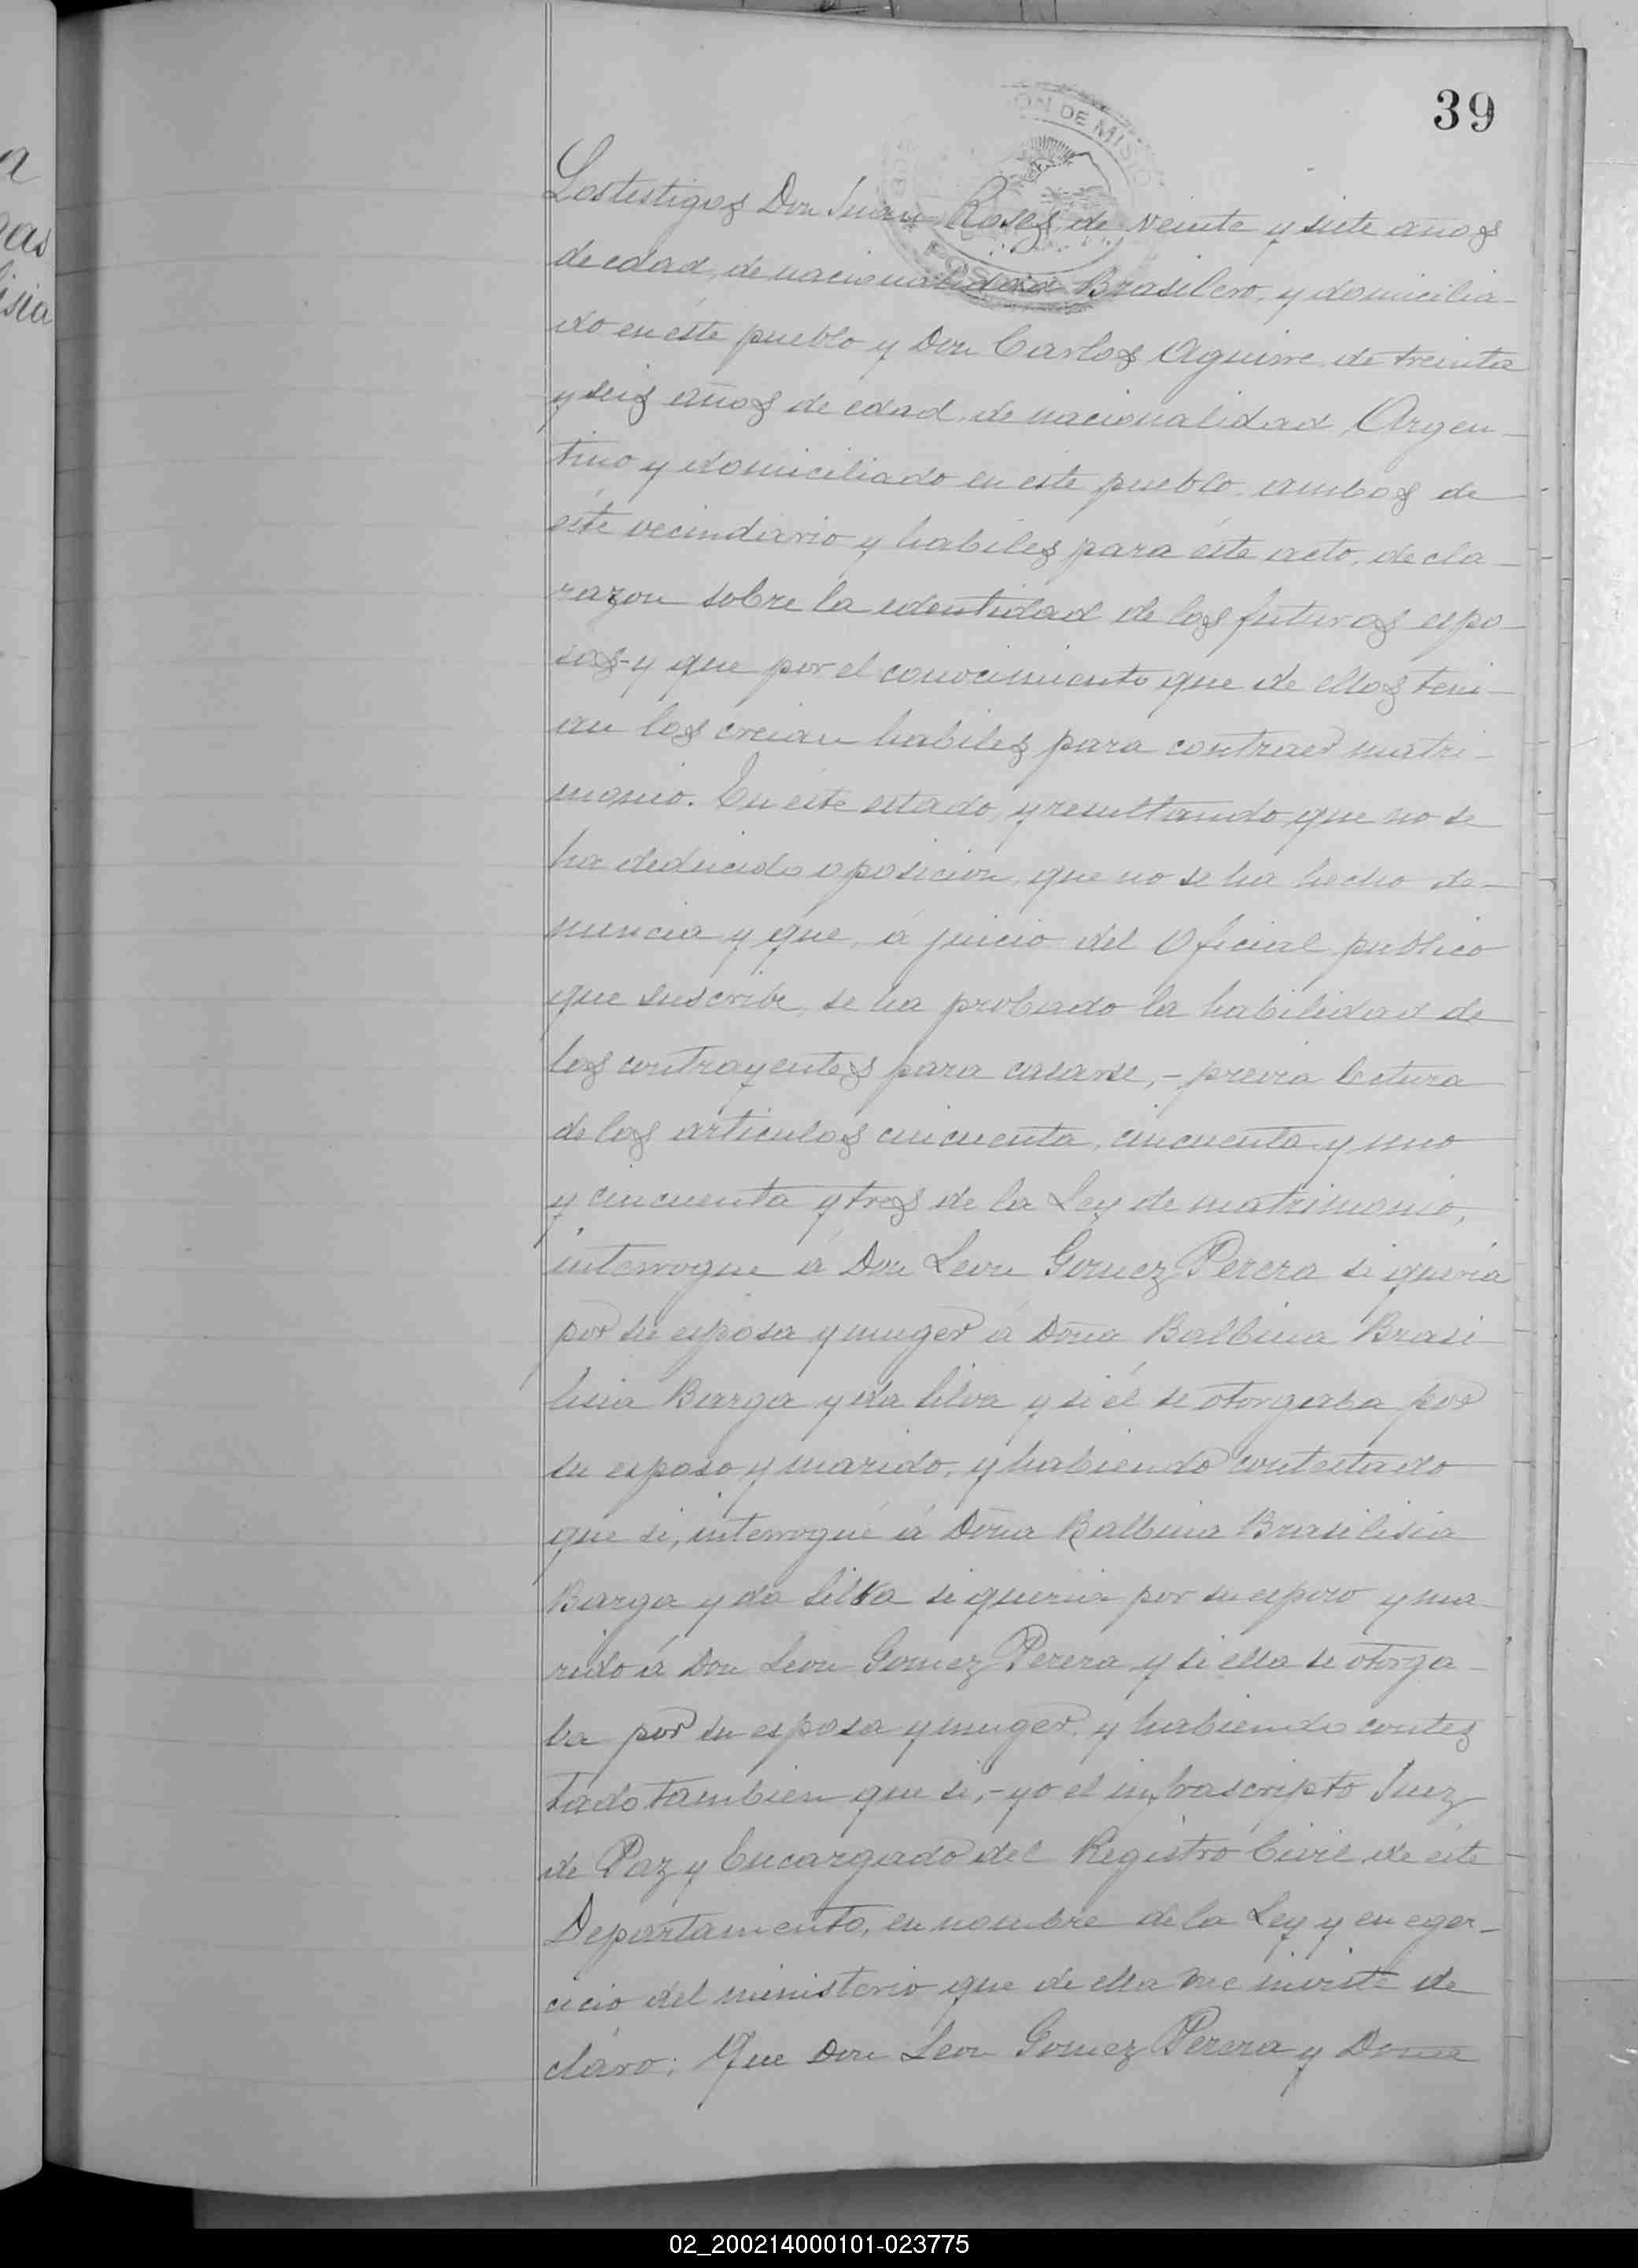 39
ON DE MIS
POS
Los testigos Don Juan Roses, de veinte y siete años
de edad, de nacionalidad Brasilero, y domicilia-
do en éste pueblo y Don Carlos Aguirre de treinta
y seis años de edad, de nacionalidad Argen-
tino y domiciliado en éste pueblo, ambos de
éste vecindario y habiles para éste acto, decla-
razon sobre la identidad de los futuros espo-
sos-y que por el conocimiento que de ellos teni-
an los creian habiles para contraer matri-
monio. En éste estado, y resultando que no se
ha deducido oposicion, que no se ha hecho de-
nuncia y que, á juicio del Oficial publico
que suscribe, se ha probado la habilidad de
los contrayentes para casarse,- previa letura
de los articulos cincuenta, cincuenta y uno
y cincuenta y tres de la Ley de matrimonio,
interrogue á Don Leon Gomez Perera si queria
por su esposa y muger á Doña Balbina Brasi
lisia Barga y da Silva y si él se otorgaba por
su esposo y marido, y habiendo contestado
que si, interrogué á Doña Balbina Brasilisia
Barga y da Silva si queria por su esposo y ma
rido á Don Leon Gomez Perera y si ella se otorga-
ba por su esposa y muger, y habiendo contes
tado tambien que si,- yo el infrascripto Juez
de Paz y Encargado del Registro Civil de éste
Departamento, en nombre de la Ley y en eger-
cicio del ministerio que de ella me inviste de
claro: Que Don Leon Gomez Perera y Doña
a
as
isia
02_200214000101-023775